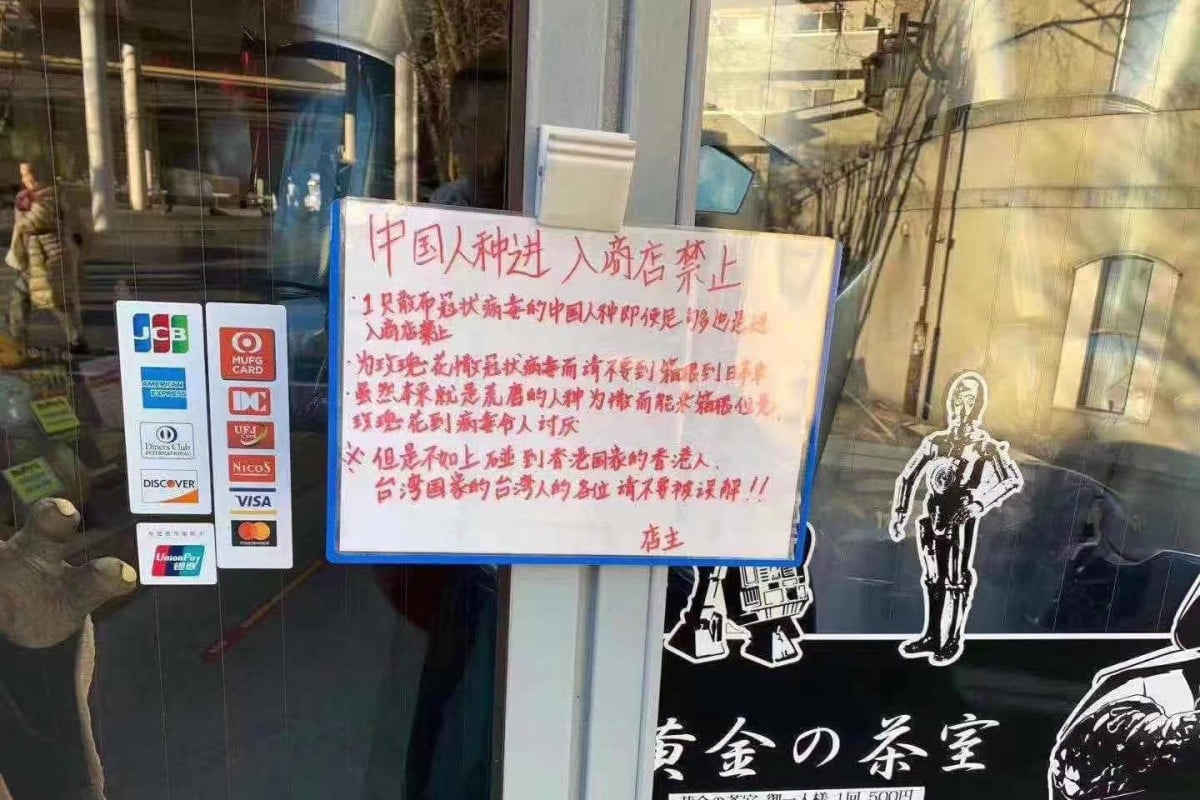 中国人种进入商店禁止
・1只散布冠状病毒的中国人种即便足够也是进
入商店禁止
・为玫瑰花撒冠状病毒而请不要到箱根到日本来
・虽然本来就是荒磨的人种为撒而能来箱根但是、
玫瑰花到病毒令人讨厌
※但是不如上碰到香港国家的香港人、
台湾国家的台湾人的各位请不要被误解!!
店主
JCB
AMERICAN EXPRESS
Diners Club
INTERNATIONAL
DISCOVER
UnionPay
银联
MUFG
CARD
DC
UFJ Card
NICOS
VISA
mastercard
黄金の茶室
黄金の茶室 御一人様 1回 500円